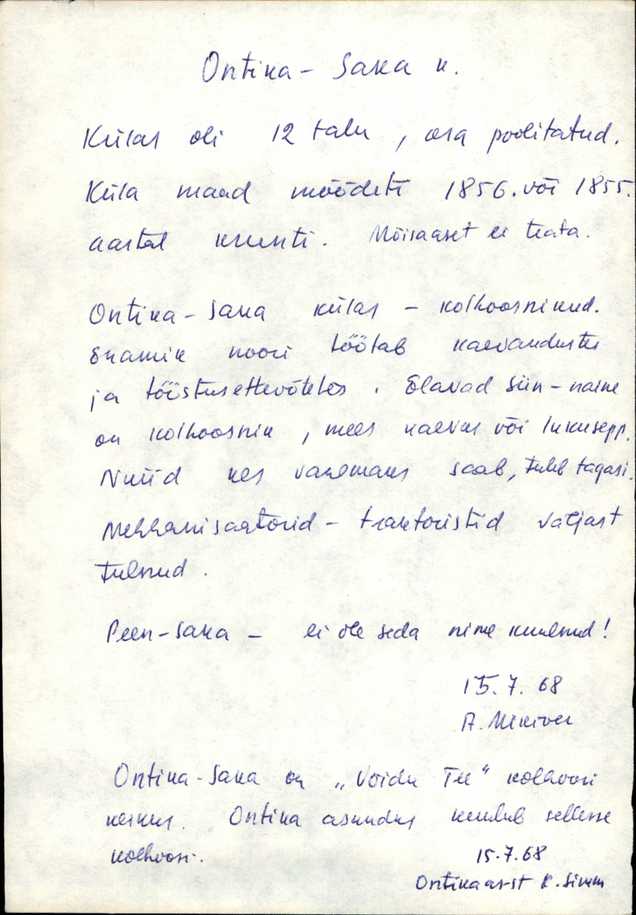 Ontika - Saka k.
Külas oli 12 talu, osa poolitatud.
Küla maad mõõdeti 1856. või 1855.
aastal krunti. Mõisaaset ei teata.
Ontika-Saka külas - kolhoosnikud.
Enamik noori töötab kaevandustes
ja tööstusettevõtetes. Elavad siin - naine
on kolhoosnik, mees kaevur või lukusepp.
Nüüd kes vanemaks saab, tuleb tagasi.
Mehhanisaatorid - traktoristid väljast
tulnud.
Peen-Saka - ei ole seda nime kuulnud!
15.7.68
A.
Ontika-Saka on "Võidu Tee" kolhoosi
keskus. Ontika asundus kuulub sellesse
kolhoosi.
15.7.68
K. Simm